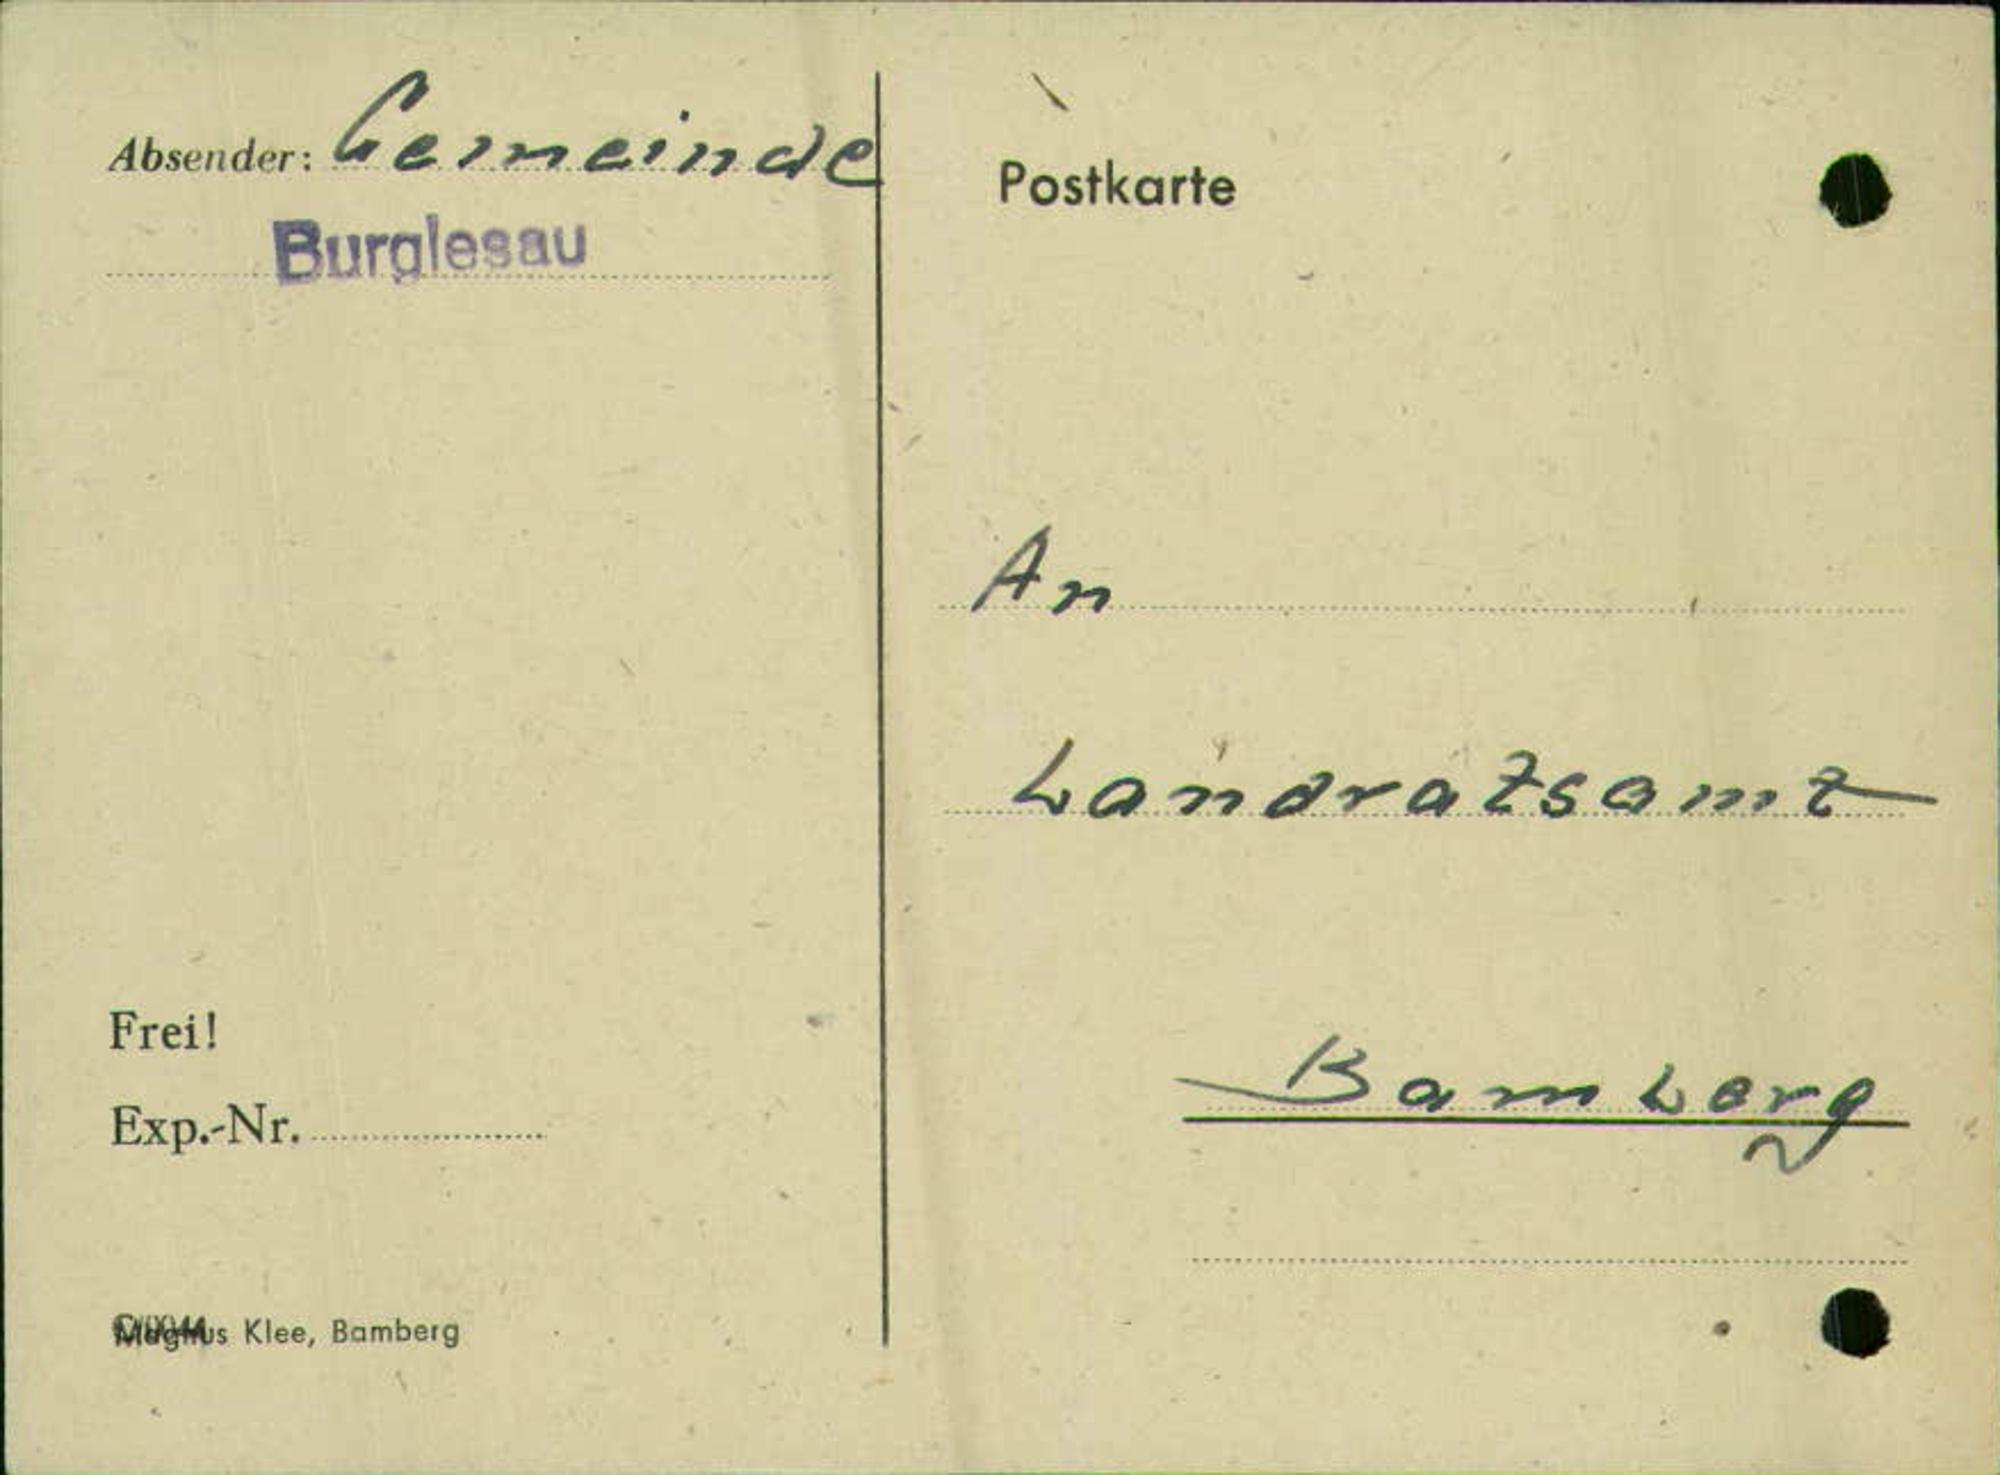 Absender: Gemeinde
Burglesau
Frei!
Exp.-Nr.
Magnus Klee, Bamberg
Postkarte
An
Landratsamt
Bamberg